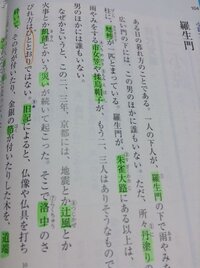 羅生門
ある日の暮れ方のことである。一人の下人が、羅生門の下で雨やみ
広い門の下には、この男のほかに誰もいない。ただ、所々丹塗り
柱に、蟋蟀が一匹とまっている。羅生門が、朱雀大路にある以上は、
雨やみをする市女笠や揉烏帽子が、もう二、三人はありそうなもので
男のほかには誰もいない。
なぜかというと、この二、三年、京都には、地震とか辻風とか
火事とか飢饉とかいう災いが続いて起こった。そこで洛中のさ
び方はひととおりではない。旧記によると、仏像や仏具を打ち
砕いて、その丹が付いたり、金銀の箔が付いたりした木を、道端
10